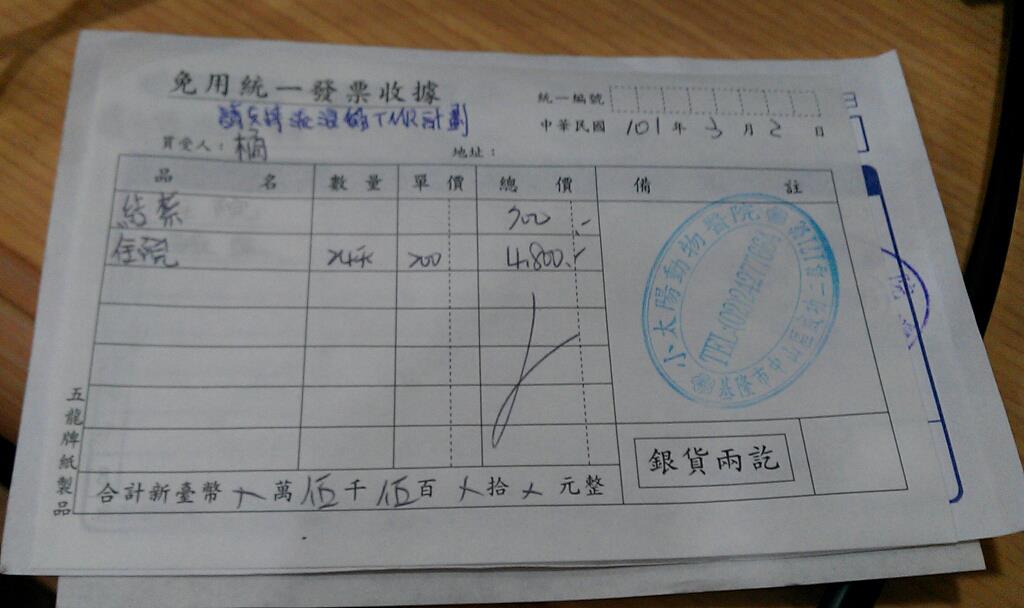 免用統一發票收據
統一編號
TNR計劃
中華民國 101 年 3 月 2 日
買受人：橘
地址：
品名 數量 單價 總價 備註
結紮 700.-
住院 24天 200 4,800.-
小太陽動物醫院
TEL:(02)24277684
基隆市中山區成功二路127號
合計新臺幣 × 萬 伍 千 伍 百 × 拾 × 元整
銀貨兩訖
五龍牌紙製品